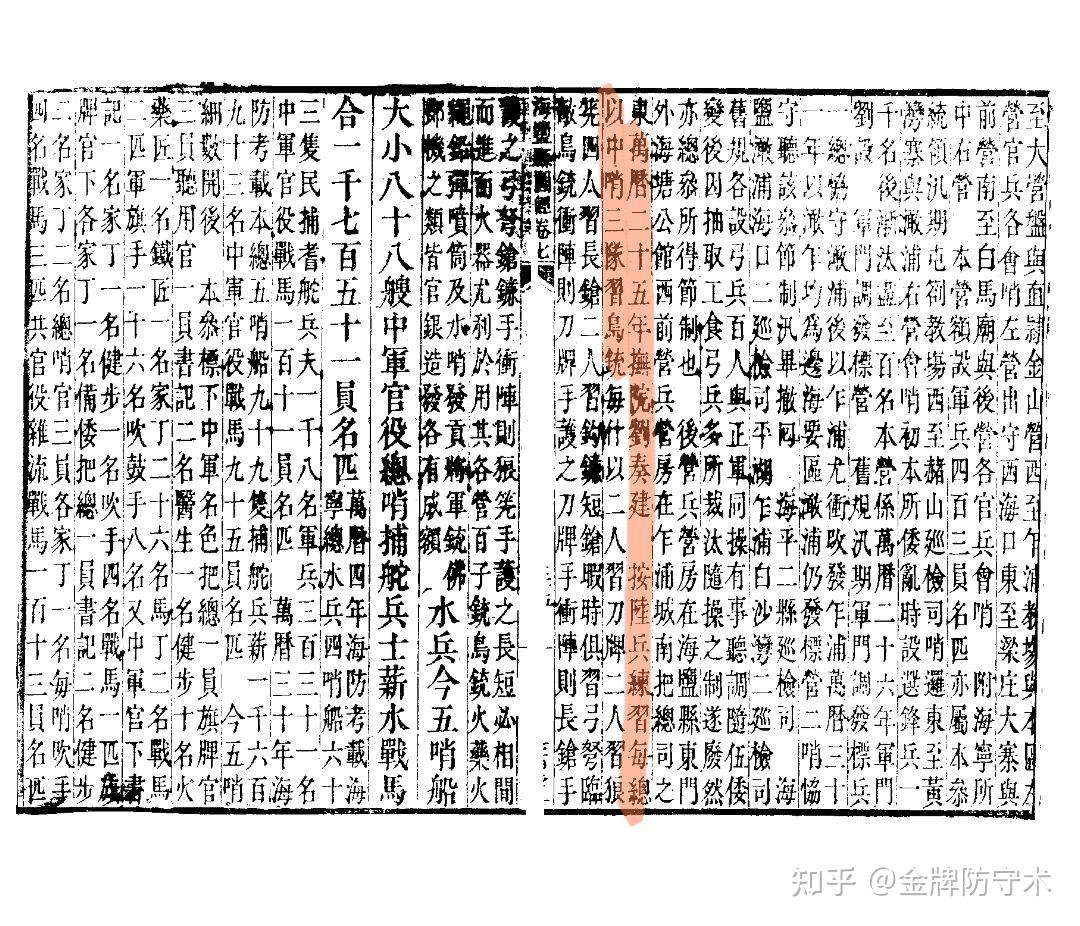 至大營盤與直隸金山營西至乍浦教塲與本區左
營官兵各會哨左營出守西海口東至梁庄大寨與
前營南至白馬廟與後營各官兵會哨 附海寧所
中右營 本營額設軍兵四百三員名匹亦屬本叅
統領汎期屯劄教塲西至赭山廵檢司哨邏東至黃
灣寨與澉浦右營會哨初本所倭亂時設選鋒兵一
千名後漸汰盡至百名本營係萬曆二十六年軍門
劉 設 舊規汎期軍門調發標兵
一總協守澉浦後以乍浦尤衝改發乍浦萬曆三十
一年以澉乍均為邊海要區澉浦仍發標營二哨協
守聽該叅節制汎畢撤囘 海平二縣廵檢司 海
鹽澉浦海口二廵檢司平湖乍浦白沙灣二廵檢司
舊規各設弓兵百人與正軍同操有事聽調隨伍倭
變後因抽取工食弓兵多所裁汰隨操之制遂廢然
亦總叅所得節制也 後營兵營房在海鹽縣東門
外海塘公館西前營兵營房在乍浦城南把總司之
東萬曆二十五年撫院劉奏建 按陸兵練習每總
以中哨三隊習鳥銃每什以二人習刀牌二人習狼
筅四人習長鎗二人習鈎鐮短鎗暇時俱習弓弩臨
敵鳥銃衝陣則刀牌手護之刀牌手衝陣則長鎗手
海鹽縣圖經卷七
護之弓弩鎗鐮手衝陣則狼筅手護之長短必相間
而進而火器尤利於用其各營百子銃鳥銃火藥火
繩鉛彈噴筒及水哨發貢將軍銃佛
郎機之類皆官銀造發各有成額 水兵今五哨船
大小八十八艘中軍官役總哨捕舵兵士薪水戰馬
合一千七百五十一員名匹 萬曆四年海防考載海
寧總水兵四哨船六十
三隻民捕耆舵兵夫一千八名軍兵三百三十一名
中軍官役戰馬一百十一員名匹 萬曆三十年海
防考載本總五哨船九十九隻捕舵兵薪一千六百
九十三名中軍官役戰馬九十五員名匹 今五哨
細數開後 本叅標下中軍名色把總一員旗牌官
三員聽用官一員書記二名醫生一名健步十名火
藥匠一名鐵匠一名家丁二十六名馬丁二名戰馬
二匹軍旗手一十六名吹鼓手八名又中軍官下書
記一名家丁一名健步一名吹手四名戰馬一匹旗
牌官下各家丁一名備倭把總一員書記二名健步
二名家丁二名總哨官三員各家丁一名每哨吹手
四名戰馬三匹共官役雜流戰馬一百十三員名匹
知乎 @金牌防守术